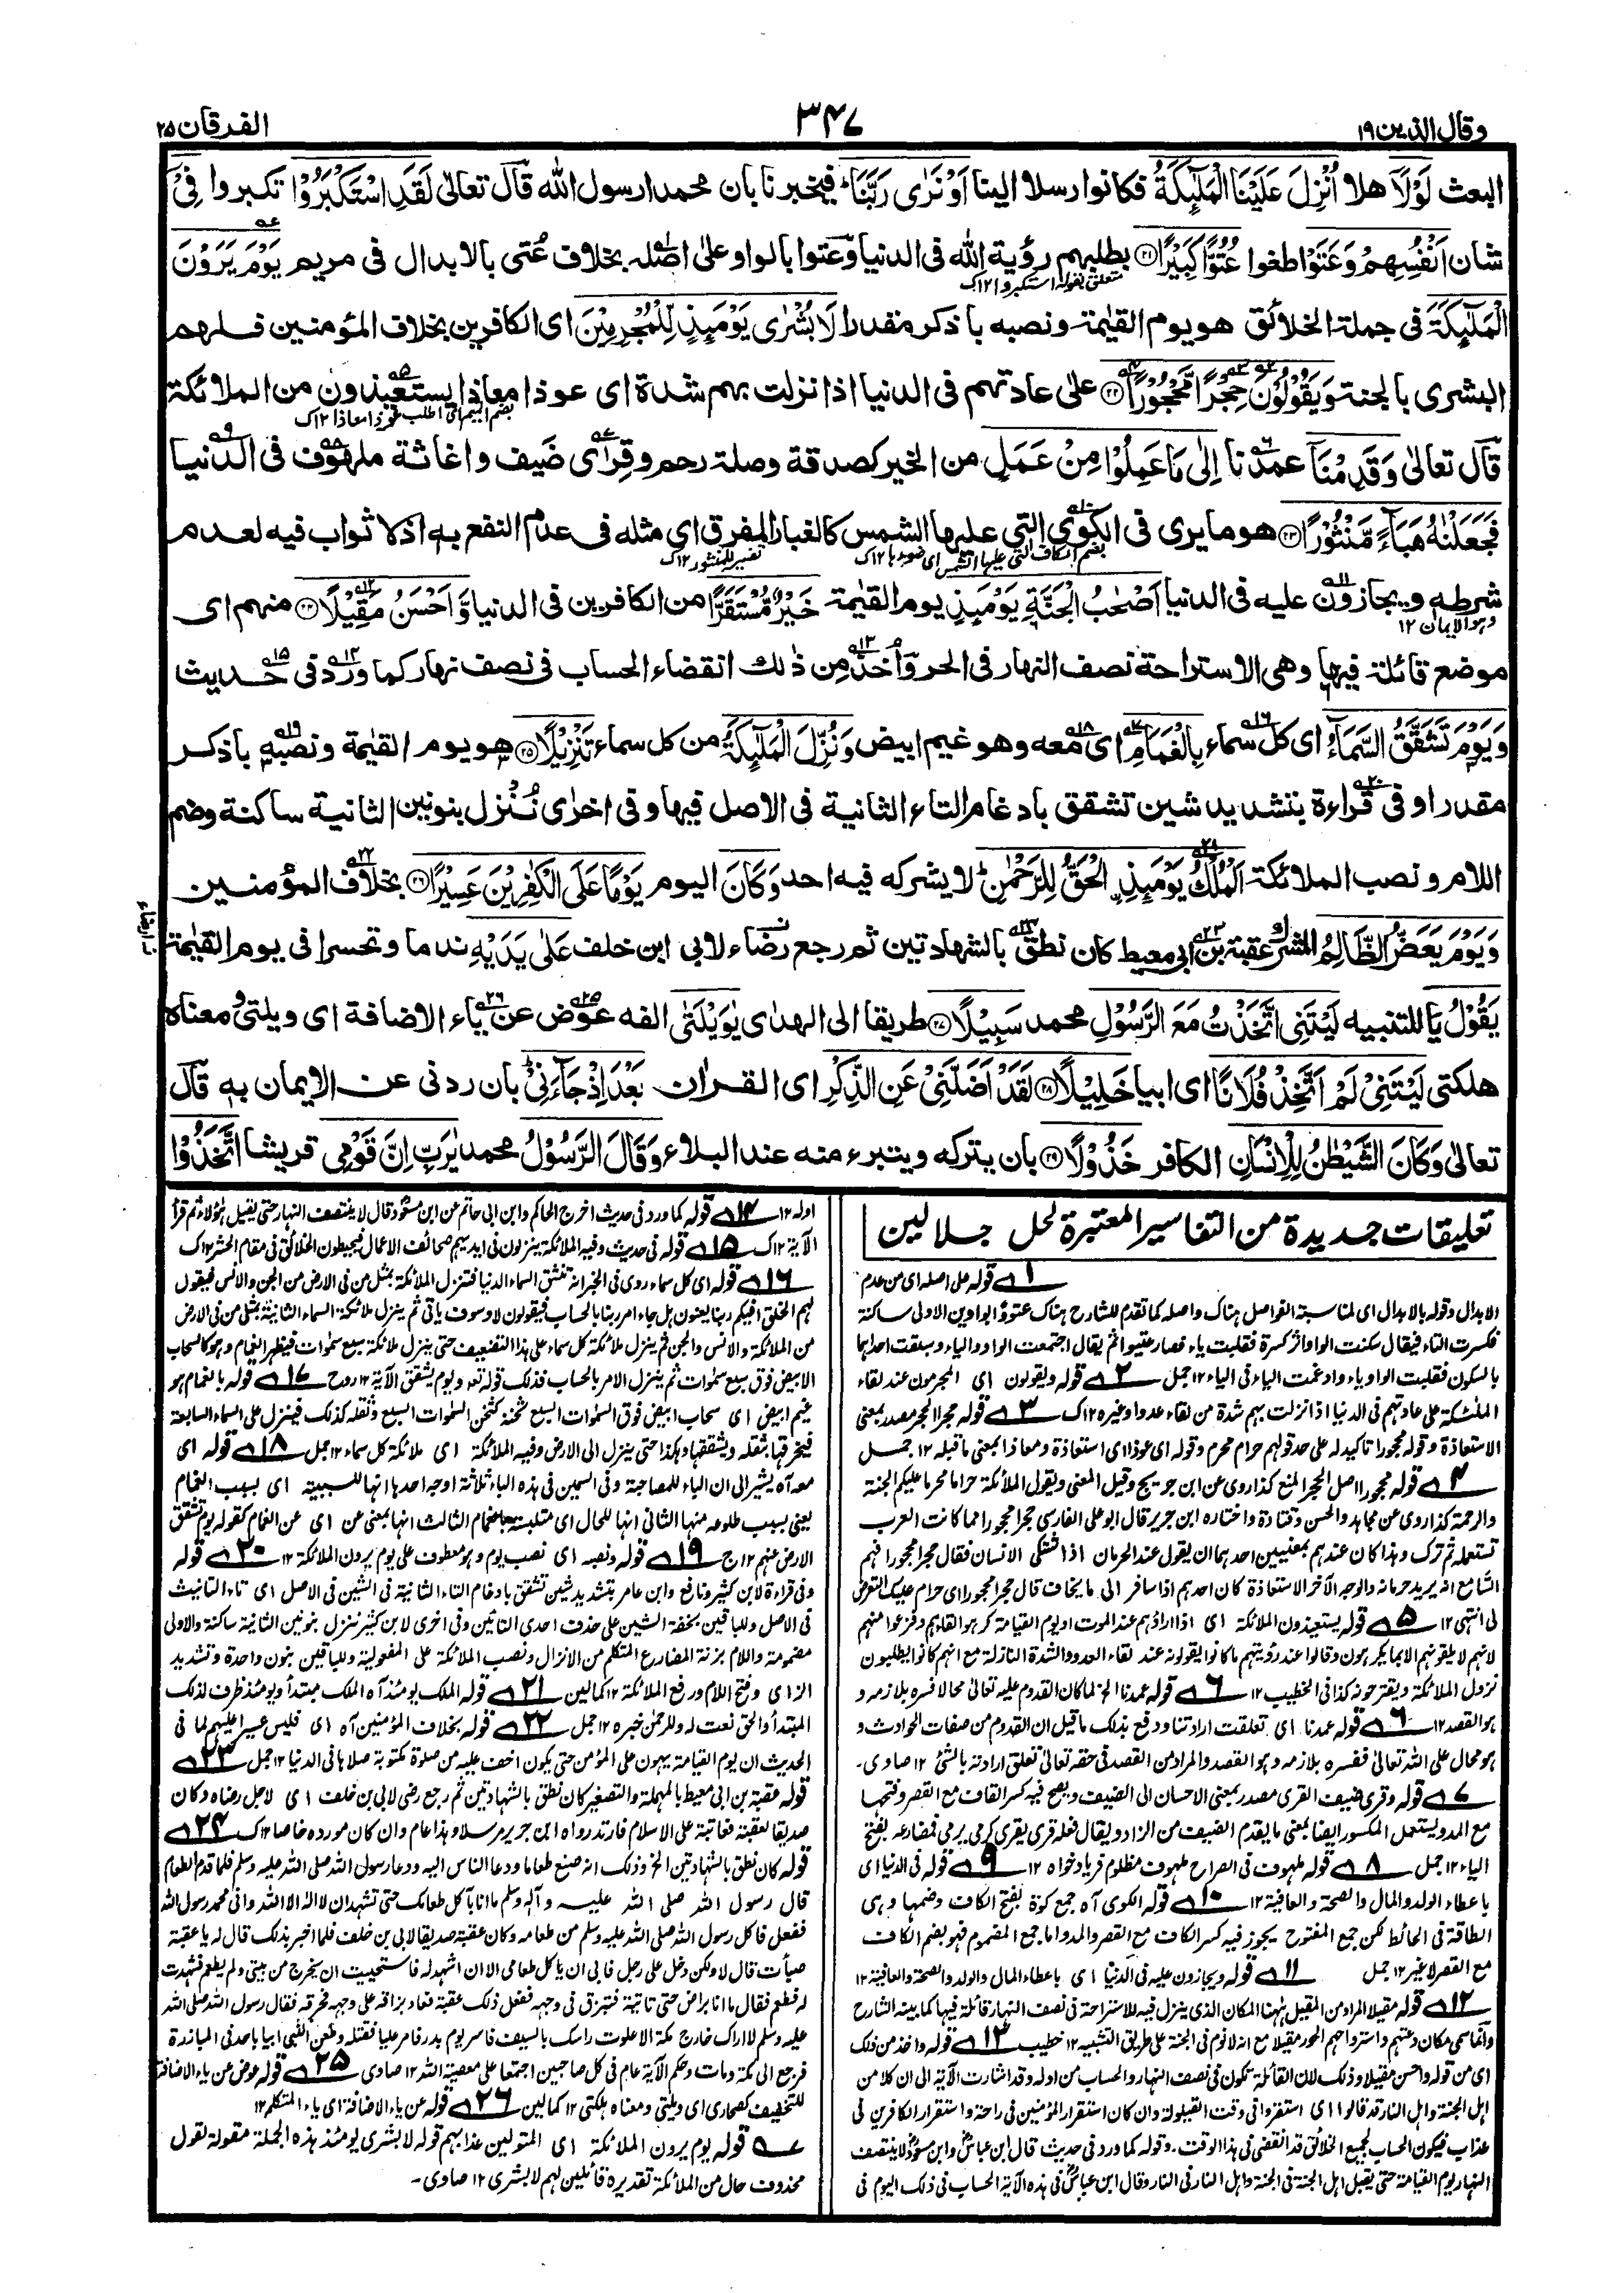 وقال الذين ١٩
٣٤٧
الفرقان ٢٥
البعث لَوْلَآ هلا اُنْزِلَ عَلَيْنَا الْمَلٰٓئِكَةُ فكانوا رسلا الينا اَوْ نَرٰى رَبَّنَا ؕ فيخبرنا بان محمدا رسول الله قال تعالىٰ لَقَدِ اسْتَكْبَرُوْا تكبروا فِيْۤ
شان اَنْفُسِهِمْ وَعَتَوْا طغوا عُتُوًّا كَبِيْرًا ﴿٢١﴾ بطلبهم رؤية الله فى الدنيا وعتوا بالواو علىٰ اصله بخلاف عُتى بالابدال فى مريم يَوْمَ يَرَوْنَ
متعلق بقوله استكبروا ١٢ ك
الْمَلٰٓئِكَةَ فى جملة الخلائق هو يوم القيٰمة ونصبه باذكر مقدرا لَا بُشْرٰى يَوْمَئِذٍ لِّلْمُجْرِمِيْنَ اى الكافرين بخلاف المؤمنين فلهم
البشرى بالجنة وَيَقُوْلُوْنَ حِجْرًا مَّحْجُوْرًا ﴿٢٢﴾ على عادتهم فى الدنيا اذا نزلت بهم شدة اى عوذا معاذا يستعيذون من الملائكة
قال تعالىٰ وَقَدِمْنَآ عمدنا اِلٰى مَا عَمِلُوْا مِنْ عَمَلٍ من الخير كصدقة وصلة رحم وقِرٰى ضَيف واغاثة ملهوف فى الدنيا
فَجَعَلْنٰهُ هَبَآءً مَّنْثُوْرًا ﴿٢٣﴾ هو ما يرى فى الكُوى التى عليها الشمس كالغبار المفرق اى مثله فى عدم النفع به اذ لا ثواب فيه لعدم
تفسير للمنثور ١٢ ك
شرطه ويجازون عليه فى الدنيا اَصْحٰبُ الْجَنَّةِ يَوْمَئِذٍ يوم القيٰمة خَيْرٌ مُّسْتَقَرًّا من الكافرين فى الدنيا وَّاَحْسَنُ مَقِيْلًا ﴿٢٤﴾ منهم اى
وهو الايمان ١٢
موضع قائلة فيها وهى الاستراحة نصف النهار فى الحر واُخذ من ذٰلك انقضاء الحساب فى نصف نهار كما ورد فى حديث
وَيَوْمَ تَشَقَّقُ السَّمَآءُ اى كل سماء بِالْغَمَامِ اى معه وهو غيم ابيض وَنُزِّلَ الْمَلٰٓئِكَةُ من كل سماء تَنْزِيْلًا ﴿٢٥﴾ هو يوم القيٰمة ونصبه باذكر
مقدرا وفى قراءة بتشديد شين تشقق بادغام التاء الثانية فى الاصل فيها وفى اخرٰى نُنْزل بنونين الثانية ساكنة وضم
اللام ونصب الملائكة اَلْمُلْكُ يَوْمَئِذِ ۨالْحَقُّ لِلرَّحْمٰنِ ؕ لا يشركه فيه احد وَكَانَ اليوم يَوْمًا عَلَى الْكٰفِرِيْنَ عَسِيْرًا ﴿٢٦﴾ بخلاف المؤمنين
وَيَوْمَ يَعَضُّ الظَّالِمُ المشرك عقبة بن ابى معيط كان نطق بالشهادتين ثم رجع رضاء لابى ابن خلف عَلٰى يَدَيْهِ ندما وتحسرا فى يوم القيٰمة
يَقُوْلُ يَا للتنبيه لَيْتَنِى اتَّخَذْتُ مَعَ الرَّسُوْلِ محمد سَبِيْلًا ﴿٢٧﴾ طريقا الى الهدٰى يٰوَيْلَتٰى الفه عوض عن ياء الاضافة اى ويلتى ومعناه
هلكتى لَيْتَنِيْ لَمْ اَتَّخِذْ فُلَانًا اى ابيا خَلِيْلًا ﴿٢٨﴾ لَقَدْ اَضَلَّنِيْ عَنِ الذِّكْرِ اى القرآن بَعْدَ اِذْ جَآءَنِيْ ؕ بان ردنى عن الايمان به قال
تعالىٰ وَكَانَ الشَّيْطٰنُ لِلْاِنْسَانِ الكافر خَذُوْلًا ﴿٢٩﴾ بان يتركه ويتبرء منه عند البلاء وَقَالَ الرَّسُوْلُ محمد يٰرَبِّ اِنَّ قَوْمِى قريشا اتَّخَذُوْا
تعليقات جديدة من التفاسير المعتبرة لحل جلالين
١ قوله على اصله اى من عدم
الابدال وقوله بالابدال اى لمناسبة الفواصل هناك واصله كما تقدم للشارح هناك عتووٌ الواوين الاولى ساكنة
فكسرت التاء فيقال سكنت الواو اثر كسرة فقلبت ياء فصار عتيوا ثم يقال اجتمعت الواو والياء وسبقت احداهما
بالسكون فقلبت الواو ياء وادغمت الياء فى الياء ١٢ جمل ٢ قوله ويقولون اى المجرمون عند لقاء
الملٰئكة على عادتهم فى الدنيا اذا نزلت بهم شدة من لقاء عدو وغيره ١٢ ك ٣ قوله حجرا الحجر مصدر بمعنى
الاستعاذة وقوله محجورا تاكيد له على حد قولهم حرام محرم وقوله اى عوذا اى استعاذة ومعاذا بمعنى ما قبله ١٢ جمل
٤ قوله محجورا اصل الحجر المنع كذا روى عن ابن جريج وقيل المعنى ويقول الملائكة حراما محرما عليكم الجنة
والرحمة كذا روى عن مجاهد والحسن وقتادة واختاره ابن جرير قال ابو على الفارسى حجرا محجورا مما كانت العرب
تستعمله ثم ترك وهذا كان عندهم بمعنيين احدهما ان يقول عند الحرمان اذا سئل الانسان فقال حجرا محجورا فهم
السامع انه يريد حرمانه والوجه الآخر الاستعاذة كان احدهم اذا سافر الى ما يخاف قال حجرا محجورا اى حرام عليك التعرض
لى انتهى ١٢ ٥ قوله يستعيذون الملائكة اى اذا رأوهم عند الموت او يوم القيامة كرهوا لقاءهم وفزعوا منهم
لانهم لا يلقونهم الا بما يكرهون وقالوا عند رؤيتهم ما كانوا يقولونه عند لقاء العدو والشدة النازلة مع انهم كانوا يطلبون
نزول الملائكة ويقترحونه كذا فى الخطيب ١٢ ٦ قوله عمدنا الخ لما كان القدوم عليه تعالىٰ محالا فسره بلازمه و
هو القصد ١٢ ٦ قوله عمدنا اى تعلقت ارادتنا ودفع بذلك ما قيل ان القدوم من صفات الحوادث و
هو محال على الله تعالىٰ ففسره بلازمه وهو القصد والمراد من القصد فى حقه تعالىٰ تعلق ارادته بالشئ ١٢ صاوى۔
٧ قوله وقرى ضيف القرى مصدر بمعنى الاحسان الى الضيف ويصح فيه كسر القاف مع القصر وفتحها
مع المد ويستعمل المكسور ايضا بمعنى ما يقدم الضيف من الزاد ويقال فعله قرى يقرى كرمى يرمى فمضارعه بفتح
الياء ١٢ جمل ٨ قوله ملهوف فى الصراح ملهوف مظلوم فرياد خواه ١٢ ٩ قوله فى الدنيا اى
باعطاء الولد والمال والصحة والعافية ١٢ ١٠ قوله الكوى آه جمع كوة بفتح الكاف وضمها وهى
الطاقة فى الحائط لكن جمع المفتوح يجوز فيه كسر الكاف مع القصر والمد واما جمع المضموم فهو بضم الكاف
مع القصر لا غير ١٢ جمل ١١ قوله ويجازون عليه فى الدنيا اى باعطاء المال والولد والصحة والعافية ١٢
١٢ قوله مقيلا المراد من المقيل ههنا المكان الذى ينزل فيه للاستراحة فى نصف النهار قائلة فيها كما بينه الشارح
مكان دعتهم واسترواحهم الحور مقيلا مع انه لا نوم فى الجنة على طريق التشبيه ١٢ خطيب ١٣ قوله واخذ من ذلك
اى من قوله واحسن مقيلا وذلك لان القائلة تكون فى نصف النهار والحساب من اوله وقد اشارت الآية الى ان كلا من
اهل الجنة واهل النار قد قالوا اى استقروا فى وقت القيلولة وان كان استقرار المؤمنين فى راحة واستقرار الكافرين فى
عذاب فيكون الحساب لجميع الخلائق قد انقضى فى هذا الوقت۔ وقوله كما ورد فى حديث قال ابن عباسؓ وابن مسعودؓ لا ينتصف
النهار يوم القيامة حتى يقيل اهل الجنة فى الجنة واهل النار فى النار وقال ابن عباسؓ فى هذه الآية الحساب فى ذلك اليوم فى
اوله ١٢ ١٤ قوله كما ورد فى حديث اخرج الحاكم وابن ابى حاتم عن ابن مسعودؓ قال لا ينتصف النهار حتى يقيل هؤلاء ثم قرأ
الآية ١٢ ك ١٥ قوله فى حديث وفيه الملائكة ينزلون فى ايديهم صحائف الاعمال فيحيطون الخلائق فى مقام الحشر ١٢ ك
١٦ قوله اى كل سماء روى فى الخبر انه تنشق السماء الدنيا فتنزل الملائكة بمثل من فى الارض من الجن والانس فيقول
لهم الخلق افيكم ربنا يعنون هل جاء امر ربنا بالحساب فيقولون لا وسوف يأتى ثم ينزل ملائكة السماء الثانية بمثلى من فى الارض
من الملائكة والانس والجن ثم ينزل ملائكة كل سماء على هذا التضعيف حتى ينزل ملائكة سبع سمٰوات فيظهر الغمام وهو كالسحاب
الابيض فوق سبع سمٰوات ثم ينزل الامر بالحساب فذلك قوله تعه ويوم يشقق الآية ١٢ روح ١٧ قوله بالغمام هو
غيم ابيض اى سحاب ابيض فوق السمٰوات السبع ثخنه كثخن السمٰوات السبع وثقله كذلك فينزل على السماء السابعة
فيخرقها بثقله ويشققها وهكذا حتى ينزل الى الارض وفيه الملائكة اى ملائكة كل سماء ١٢ جمل ١٨ قوله اى
معه آه يشير الى ان الباء للمصاحبة وفى السمين فى هذه الباء ثلاثة اوجه احدها انها للسببية اى بسبب الغمام
يعنى بسبب طلوعه منها الثانى انها للحال اى متلبسة بالغمام الثالث انها بمعنى عن اى عن الغمام كقوله يوم تشقق
الارض عنهم ١٢ ج ١٩ قوله ونصبه اى نصب يوم وهو معطوف على يوم يرون الملائكة ١٢ ٢٠ قوله
وفى قراءة لابن كثير ونافع وابن عامر بتشديد شين تشقق بادغام التاء الثانية فى الشين فى الاصل اى تاء التانيث
فى الاصل وللباقين بخفة الشين على حذف احدى التائين وفى اخرى لابن كثير ننزل بنونين الثانية ساكنة والاولى
مضمومة واللام بزنة المضارع المتكلم من الانزال ونصب الملائكة على المفعولية وللباقين بنون واحدة وتشديد
الزاى وفتح اللام ورفع الملائكة ١٢ كمالين ٢١ قوله الملك يومئذ آه الملك مبتدأ ويومئذ ظرف لذلك
المبتدأ والحق نعت له وللرحمٰن خبره ١٢ جمل ٢٢ قوله بخلاف المؤمنين آه اى فليس عسيرا عليهم لما فى
الحديث ان يوم القيامة يهون على المؤمن حتى يكون اخف عليه من صلوة مكتوبة صلاها فى الدنيا ١٢ جمل ٢٣
قوله عقبة بن ابى معيط بالمهملة والتصغير كان نطق بالشهادتين ثم رجع رضى لابى بن خلف اى لاجل رضاه وكان
صديقا لعقبة فعاتبه على الاسلام فارتد رواه ابن جرير مرسلا وهذا عام وان كان مورده خاصا ١٢ ك ٢٤
قوله كان نطق بالشهادتين الخ وذلك انه صنع طعاما ودعا الناس اليه ودعا رسول الله صلى الله عليه وسلم فلما قدم الطعام
قال رسول الله صلى الله عليه وآله وسلم ما انا بآكل طعامك حتى تشهد ان لا الٰه الا الله وانى محمد رسول الله
ففعل فاكل رسول الله صلى الله عليه وسلم من طعامه وكان عقبة صديقا لابى بن خلف فلما اخبر بذلك قال له يا عقبة
صبأت قال لا ولكن دخل على رجل فابى ان ياكل طعامى الا ان اشهد له فاستحييت ان يخرج من بيتى ولم يطعم فشهدت
له فطعم فقال ما انا براض حتى تاتيه فتبزق فى وجهه ففعل ذلك عقبة فعاد بزاقه على وجهه فحرقه فقال رسول الله صلى الله
عليه وسلم لا اراك خارج مكة الا علوت راسك بالسيف فاسر يوم بدر فامر عليا فقتله وطعن النبى ابيا باحد فى المبارزة
فرجع الى مكة ومات وحكم الآية عام فى كل صاحبين اجتمعا على معصية الله ١٢ صاوى ٢٥ قوله عوض عن ياء الاضافة
للتخفيف كصحارى اى ويلتى ومعناه هلكتى ١٢ كمالين ٢٦ قوله عن ياء الاضافة اى ياء المتكلم ١٢
قوله يوم يرون الملائكة اى المتولين عذابهم قوله لا بشرى يومئذ هذه الجملة مقولة لقول
محذوف حال من الملائكة تقديره قائلين لهم لا بشرى ١٢ صاوى۔